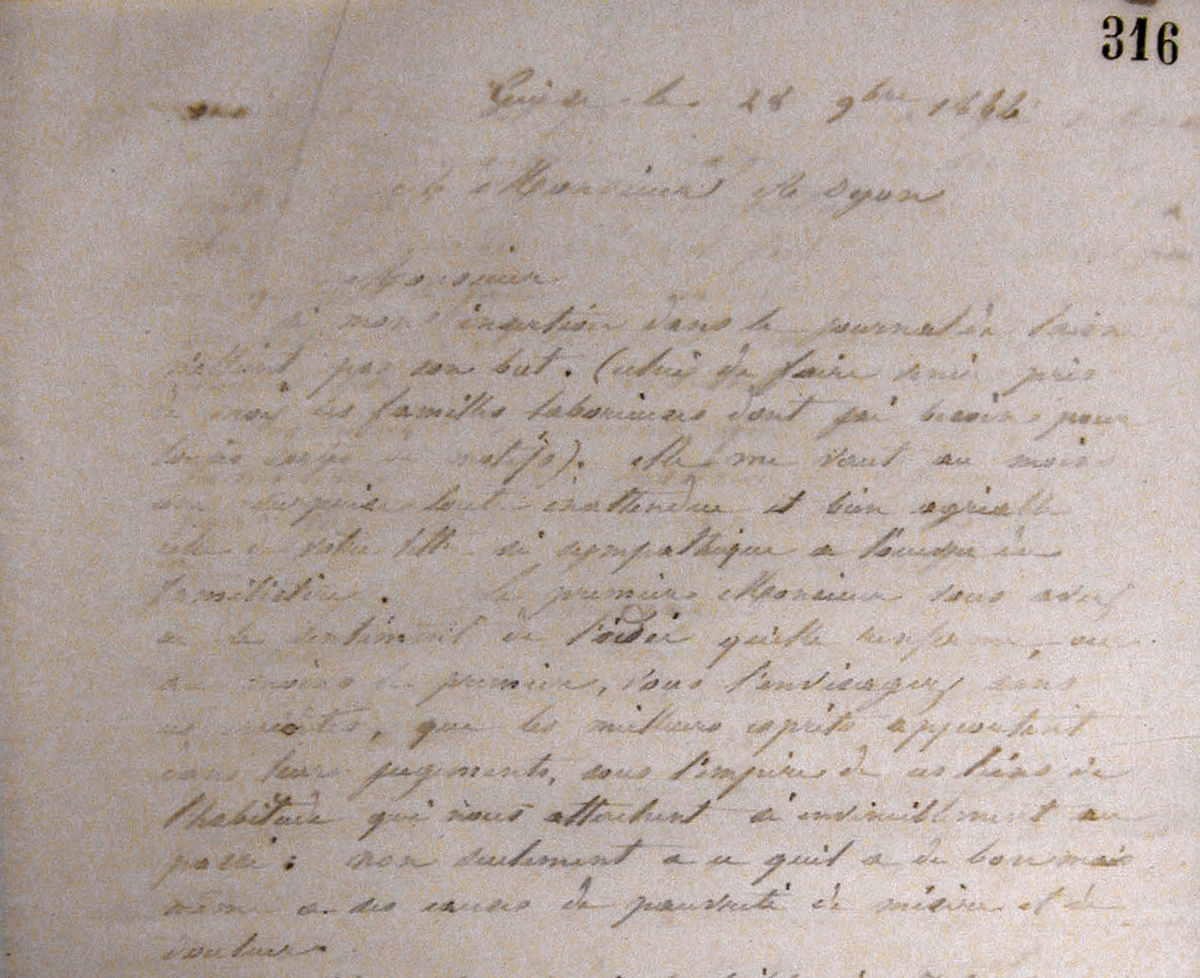 316
Guise le 28 9bre 1866
A Monsieur de Lyon
Monsieur
Si mon insertion dans le journal de
n'atteint pas son but. (celui de faire venir près
de moi des familles laborieuses dont j'ai besoin pour
motifs). elle me vaut au moins
une surprise toute inattendue et bien agréable
celle de votre lettre si sympathique a l'oeuvre du
familistère. Le premier Monsieur vous avez
eu le sentiment de l'idée qu'elle renferme, ou
au moins le premier, vous l'envisagez sans
ces que les meilleurs esprits apportent
dans leurs jugements, sous l'empire de ces liens de
l'habitude qui nous attachent si invinciblement au
passé: non seulement a ce quil a de bon mais
même a des causes de pauvreté de misère et de
douleur.